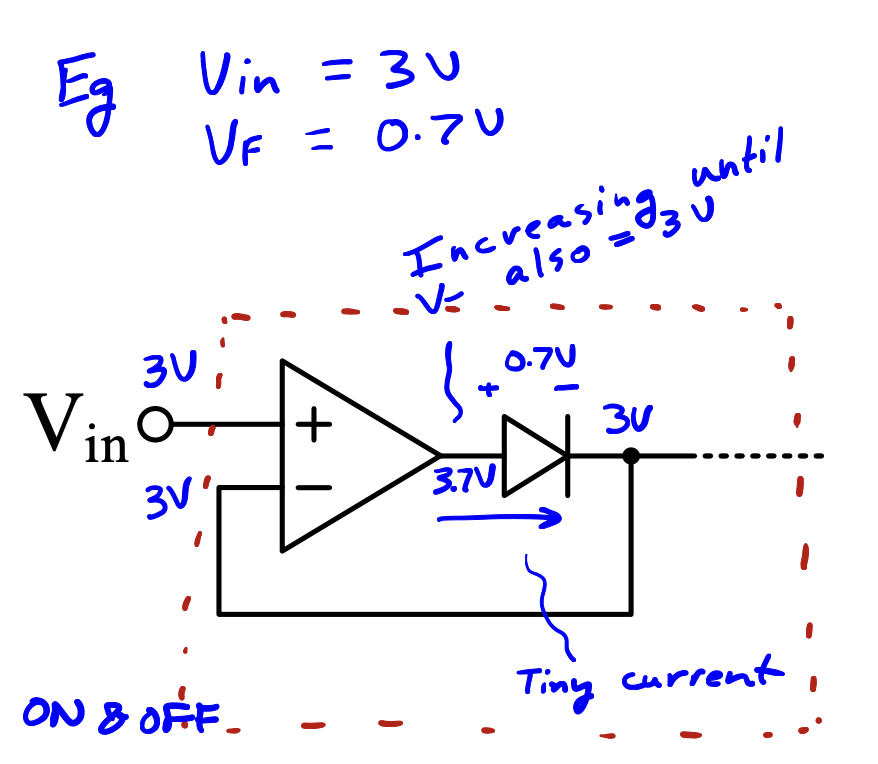 Eg Vin = 3V
VF = 0.7V
Increasing until
V- also = 3V
3V
+ 0.7V -
3V
Vin
+
3.7V
3V
-
Tiny current
ON & OFF